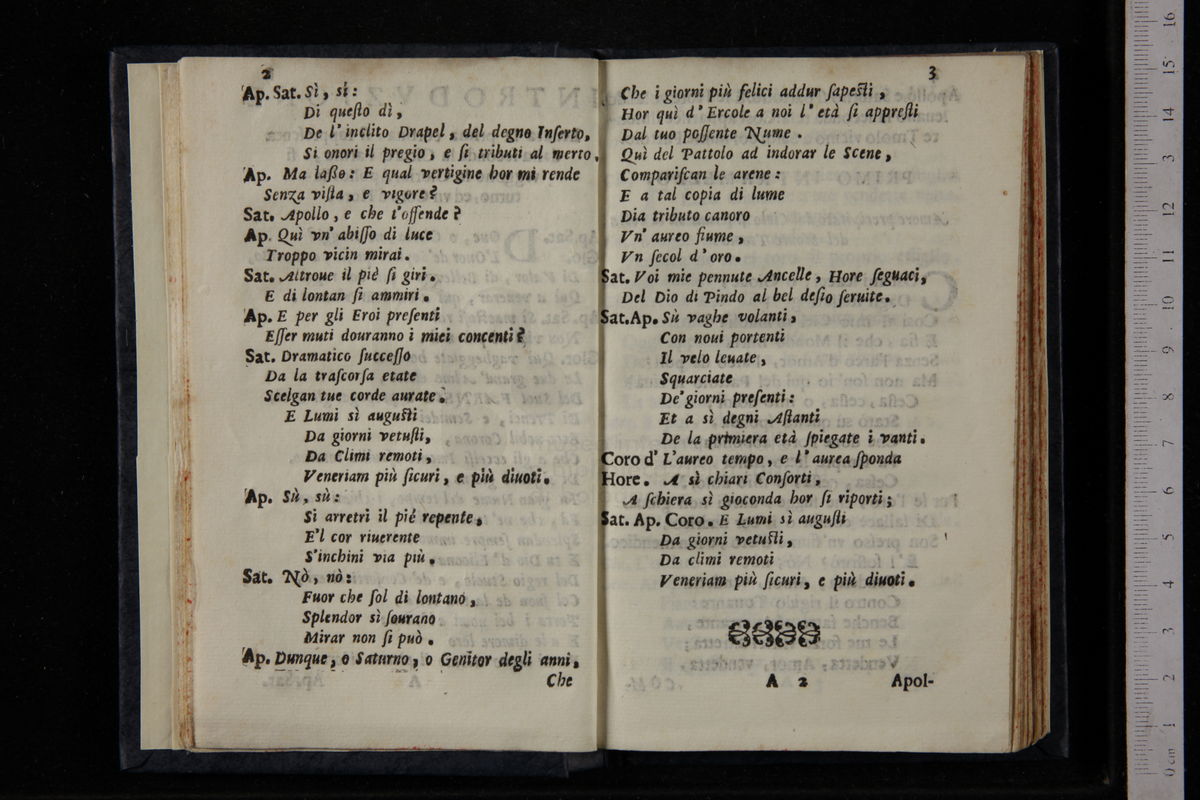 2
Ap. Sat. Sì, sì:
Di queſto dì,
De l'inclito Drapel, del degno Inſerto,
Si onori il pregio, e ſi tributi al merto.
Ap. Ma laßo: E qual vertigine hor mi rende
Senza viſta, e vigore?
Sat. Apollo, e che t'offende?
Ap. Quì vn' abiſſo di luce
Troppo vicin mirai.
Sat. Altroue il piè ſi giri.
E di lontan ſi ammiri.
Ap. E per gli Eroi preſenti
Eſſer muti douranno i miei concenti?
Sat. Dramatico ſucceſſo
Da la traſcorſa etate
Scelgan tue corde aurate.
E Lumi sì auguſti
Da giorni vetuſti,
Da Climi remoti,
Veneriam più ſicuri, e più diuoti.
Ap. Sù, sù:
Si arretri il pié repente,
E'l cor riuerente
S'inchini via più.
Sat. Nò, nò:
Fuor che ſol di lontano,
Splendor sì ſourano
Mirar non ſi può.
Ap. Dunque, o Saturno, o Genitor degli anni,
Che
3
Che i giorni più felici addur ſapeſti,
Hor quì d'Ercole a noi l'età ſi appreſti
Dal tuo poſſente Nume.
Quì del Pattolo ad indorar le Scene,
Compariſcan le arene:
E a tal copia di lume
Dia tributo canoro
Vn' aureo fiume,
Vn ſecol d'oro.
Sat. Voi mie pennute Ancelle, Hore ſeguaci,
Del Dio di Pindo al bel deſio ſeruite.
Sat.Ap. Sù vaghe volanti,
Con noui portenti
Il velo leuate,
Squarciate
De'giorni preſenti:
Et a sì degni Aſtanti
De la primiera età ſpiegate i vanti.
Coro d' L'aureo tempo, e l'aurea ſponda
Hore. A sì chiari Conſorti,
A ſchiera sì gioconda hor ſi riporti;
Sat. Ap. Coro. E Lumi sì auguſti
Da giorni vetuſti,
Da climi remoti
Veneriam più ſicuri, e più diuoti.
A 2 Apol-
0 cm 1 2 3 4 5 6 7 8 9 10 11 12 13 14 15 16